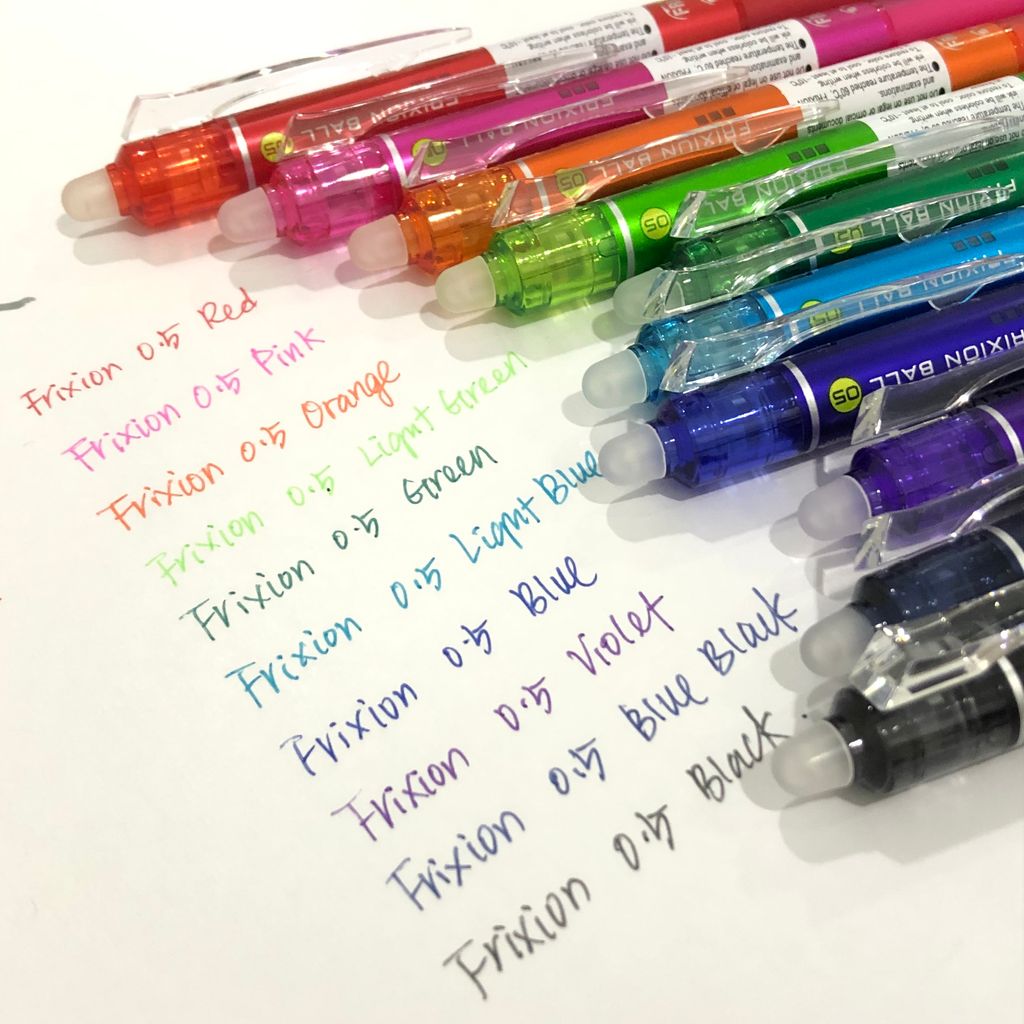 Frixion 0.5 Red
Frixion 0.5 Pink
Frixion 0.5 Orange
Frixion 0.5 Light Green
Frixion 0.5 Green
Frixion 0.5 Light Blue
Frixion 0.5 Blue
Frixion 0.5 Violet
Frixion 0.5 Blue Black
Frixion 0.5 Black
05 FRIXION BALL
05 FRIXION BALL
05 FRIXION BALL
05 FRIXION BALL
05 FRIXION BALL
05 FRIXION BALL
05 FRIXION BALL